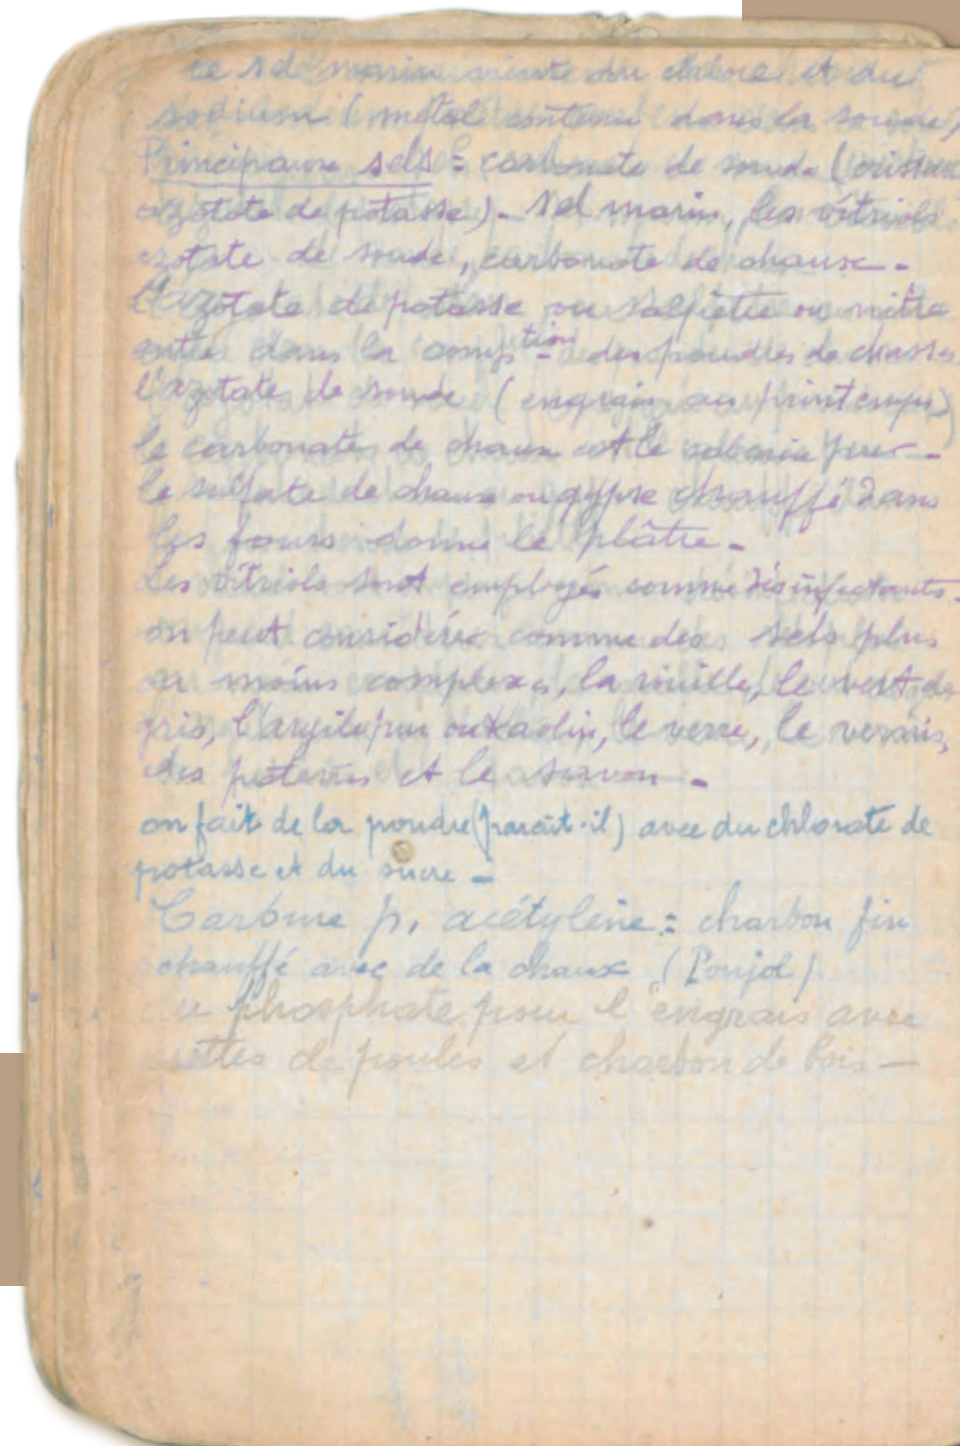 Le sel marin du chlore et du
sodium (métal contenu dans la soude)
Principaux sels = carbonate de soude (cristaux
azotate de potasse). Sel marin, les vitriols
azotate de soude, carbonate de chaux -
L'azotate de potasse ou salpêtre ou nitre
entre dans la comp^tion des poudres de chasse
l'azotate de soude (engrais au printemps)
le carbonate de chaux est le pur -
le sulfate de chaux ou gypse chauffé dans
les fours donne le plâtre -
Les vitriols sont employés comme désinfectants -
on peut considérer comme des sels plus
ou moins complexes, la rouille, le vert de
gris, l'argile pur ou kaolin, le verre, le vernis,
des poteries et le savon -
on fait de la poudre (paraît-il) avec du chlorate de
potasse et du sucre -
Carbure p. acétylène = charbon fin
chauffé avec de la chaux (Poujol)
du phosphate pour l'engrais avec
de poules et charbon de bois —